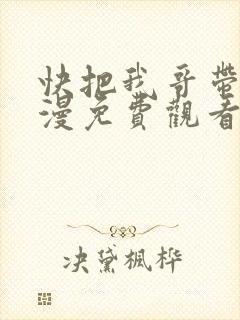 快把我哥帶
漫免費觀看
决黛楓桦